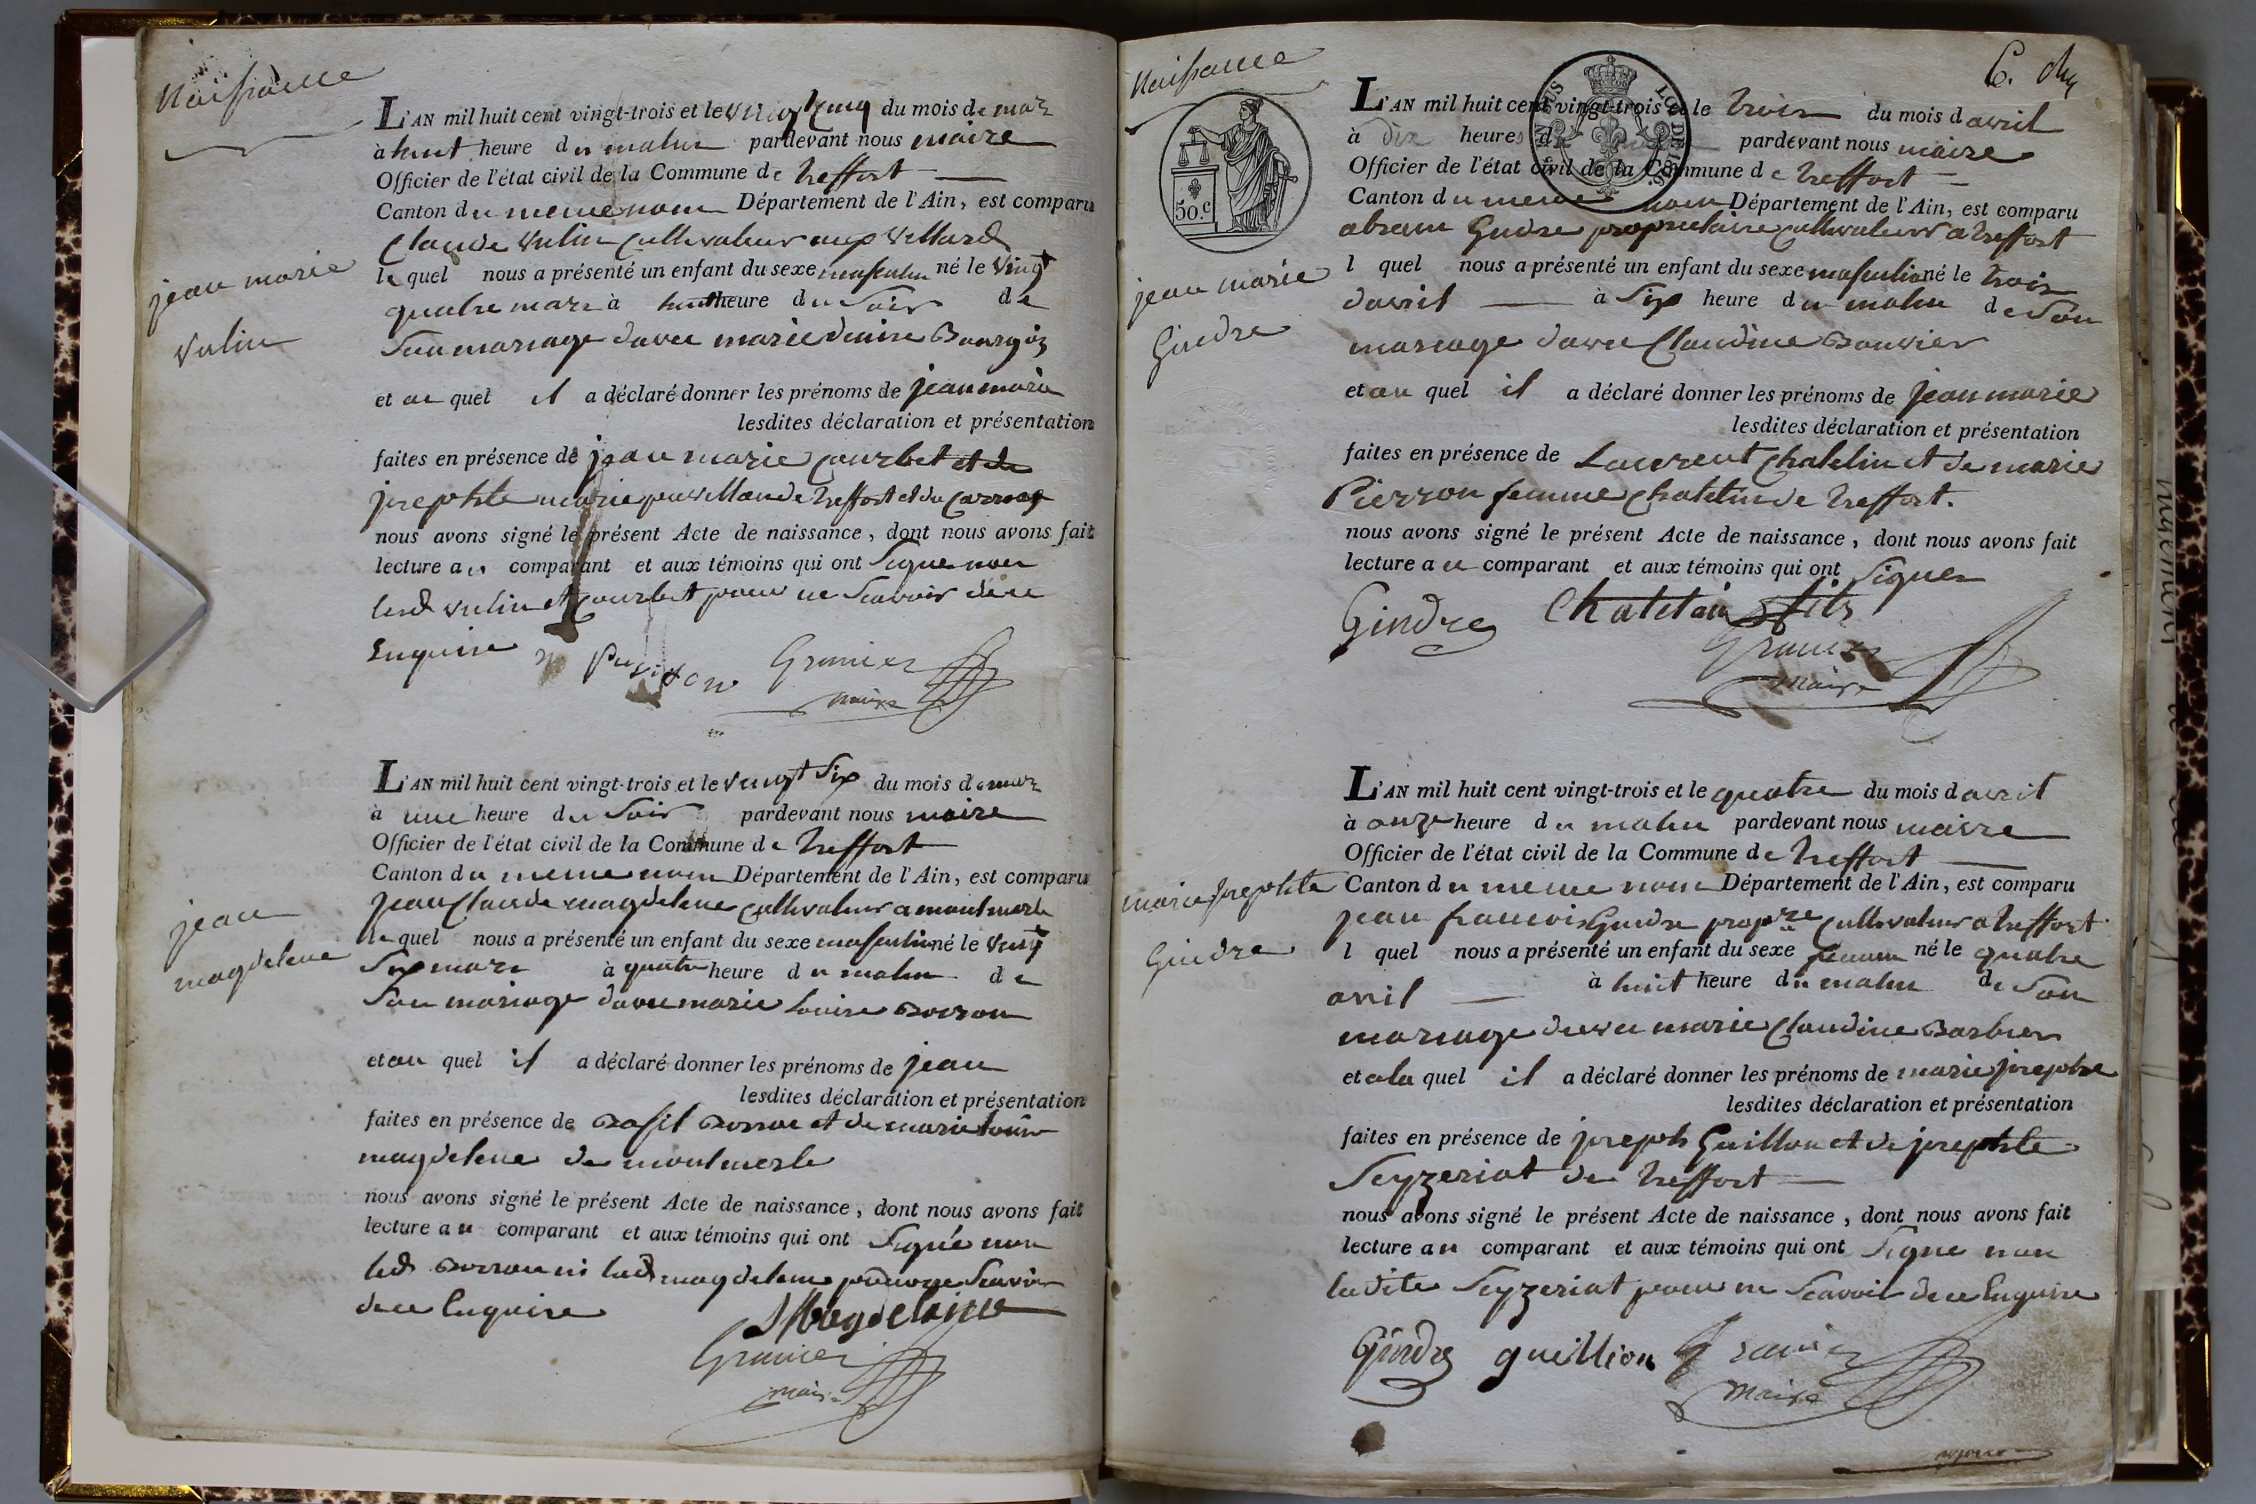 Naissance
L'AN mil huit cent vingt-trois et le vingt cinq du mois de mars
à huit heure du matin pardevant nous maire
Officier de l'état civil de la Commune de treffort
Canton du meme nom Département de l'Ain, est comparu
Claude vulin cultivateur aux villards
jean marie
vulin
le quel nous a présenté un enfant du sexe masculin né le vingt
quatre mars à huit heure du soir de
son mariage davec marie denise
et au quel il a déclaré donner les prénoms de jean marie
lesdites déclaration et présentation
faites en présence de jean marie courbet et de
josephte marie de treffort et du
nous avons signé le présent Acte de naissance, dont nous avons fait
lecture au comparant et aux témoins qui ont signe non
lesd vulin et courbet pour ne scavoir de ce
Enquise
Granier
maire
L'AN mil huit cent vingt-trois et le vingt six du mois de mars
à une heure du soir pardevant nous maire
Officier de l'état civil de la Commune de treffort
Canton du meme nom Département de l'Ain, est comparu
jean Claude magdelene cultivateur a montmerle
jean
magdelene
le quel nous a présenté un enfant du sexe masculin né le vingt
six mars à quatre heure du matin de
son mariage davec marie louise
et au quel il a déclaré donner les prénoms de jean
lesdites déclaration et présentation
faites en présence de Basil et de marie louise
magdelene de montmerle
nous avons signé le présent Acte de naissance, dont nous avons fait
lecture au comparant et aux témoins qui ont signé non
led ni lad magdelene pour ne scavoir
de ce Enquise
Magdelaine
Granier
maire
Naissance
L'AN mil huit cent vingt-trois et le trois du mois davril
à dix heures du pardevant nous maire
Officier de l'état civil de la Commune de treffort
Canton du meme nom Département de l'Ain, est comparu
abram Gindre proprietaire cultivateur a treffort
50.c
LOI DE 1816.
jean marie
Gindre
l quel nous a présenté un enfant du sexe masculin né le trois
davril à six heure du matin de son
mariage davec Claudine Bouvier
et au quel il a déclaré donner les prénoms de jean marie
lesdites déclaration et présentation
faites en présence de Laurent Chatelin et de marie
Pierron femme Chatelin de treffort.
nous avons signé le présent Acte de naissance, dont nous avons fait
lecture au comparant et aux témoins qui ont signer
Gindre Chatelain fils
Granier
maire
L'AN mil huit cent vingt-trois et le quatre du mois davril
à onze heure du matin pardevant nous maire
Officier de l'état civil de la Commune de treffort
Canton du meme nom Département de l'Ain, est comparu
jean francois Gindre propre cultivateur a treffort
marie josephte
Gindre
l quel nous a présenté un enfant du sexe feminin né le quatre
avril à huit heure du matin de son
mariage davec marie Claudine Barbier
et a la quel il a déclaré donner les prénoms de marie josephte
lesdites déclaration et présentation
faites en présence de joseph Guillon et de josephte
Seyzeriat de treffort
nous avons signé le présent Acte de naissance, dont nous avons fait
lecture au comparant et aux témoins qui ont signe non
la dite Seyzeriat pour ne scavoir de ce Enquise
Gindre guillion Granier
maire